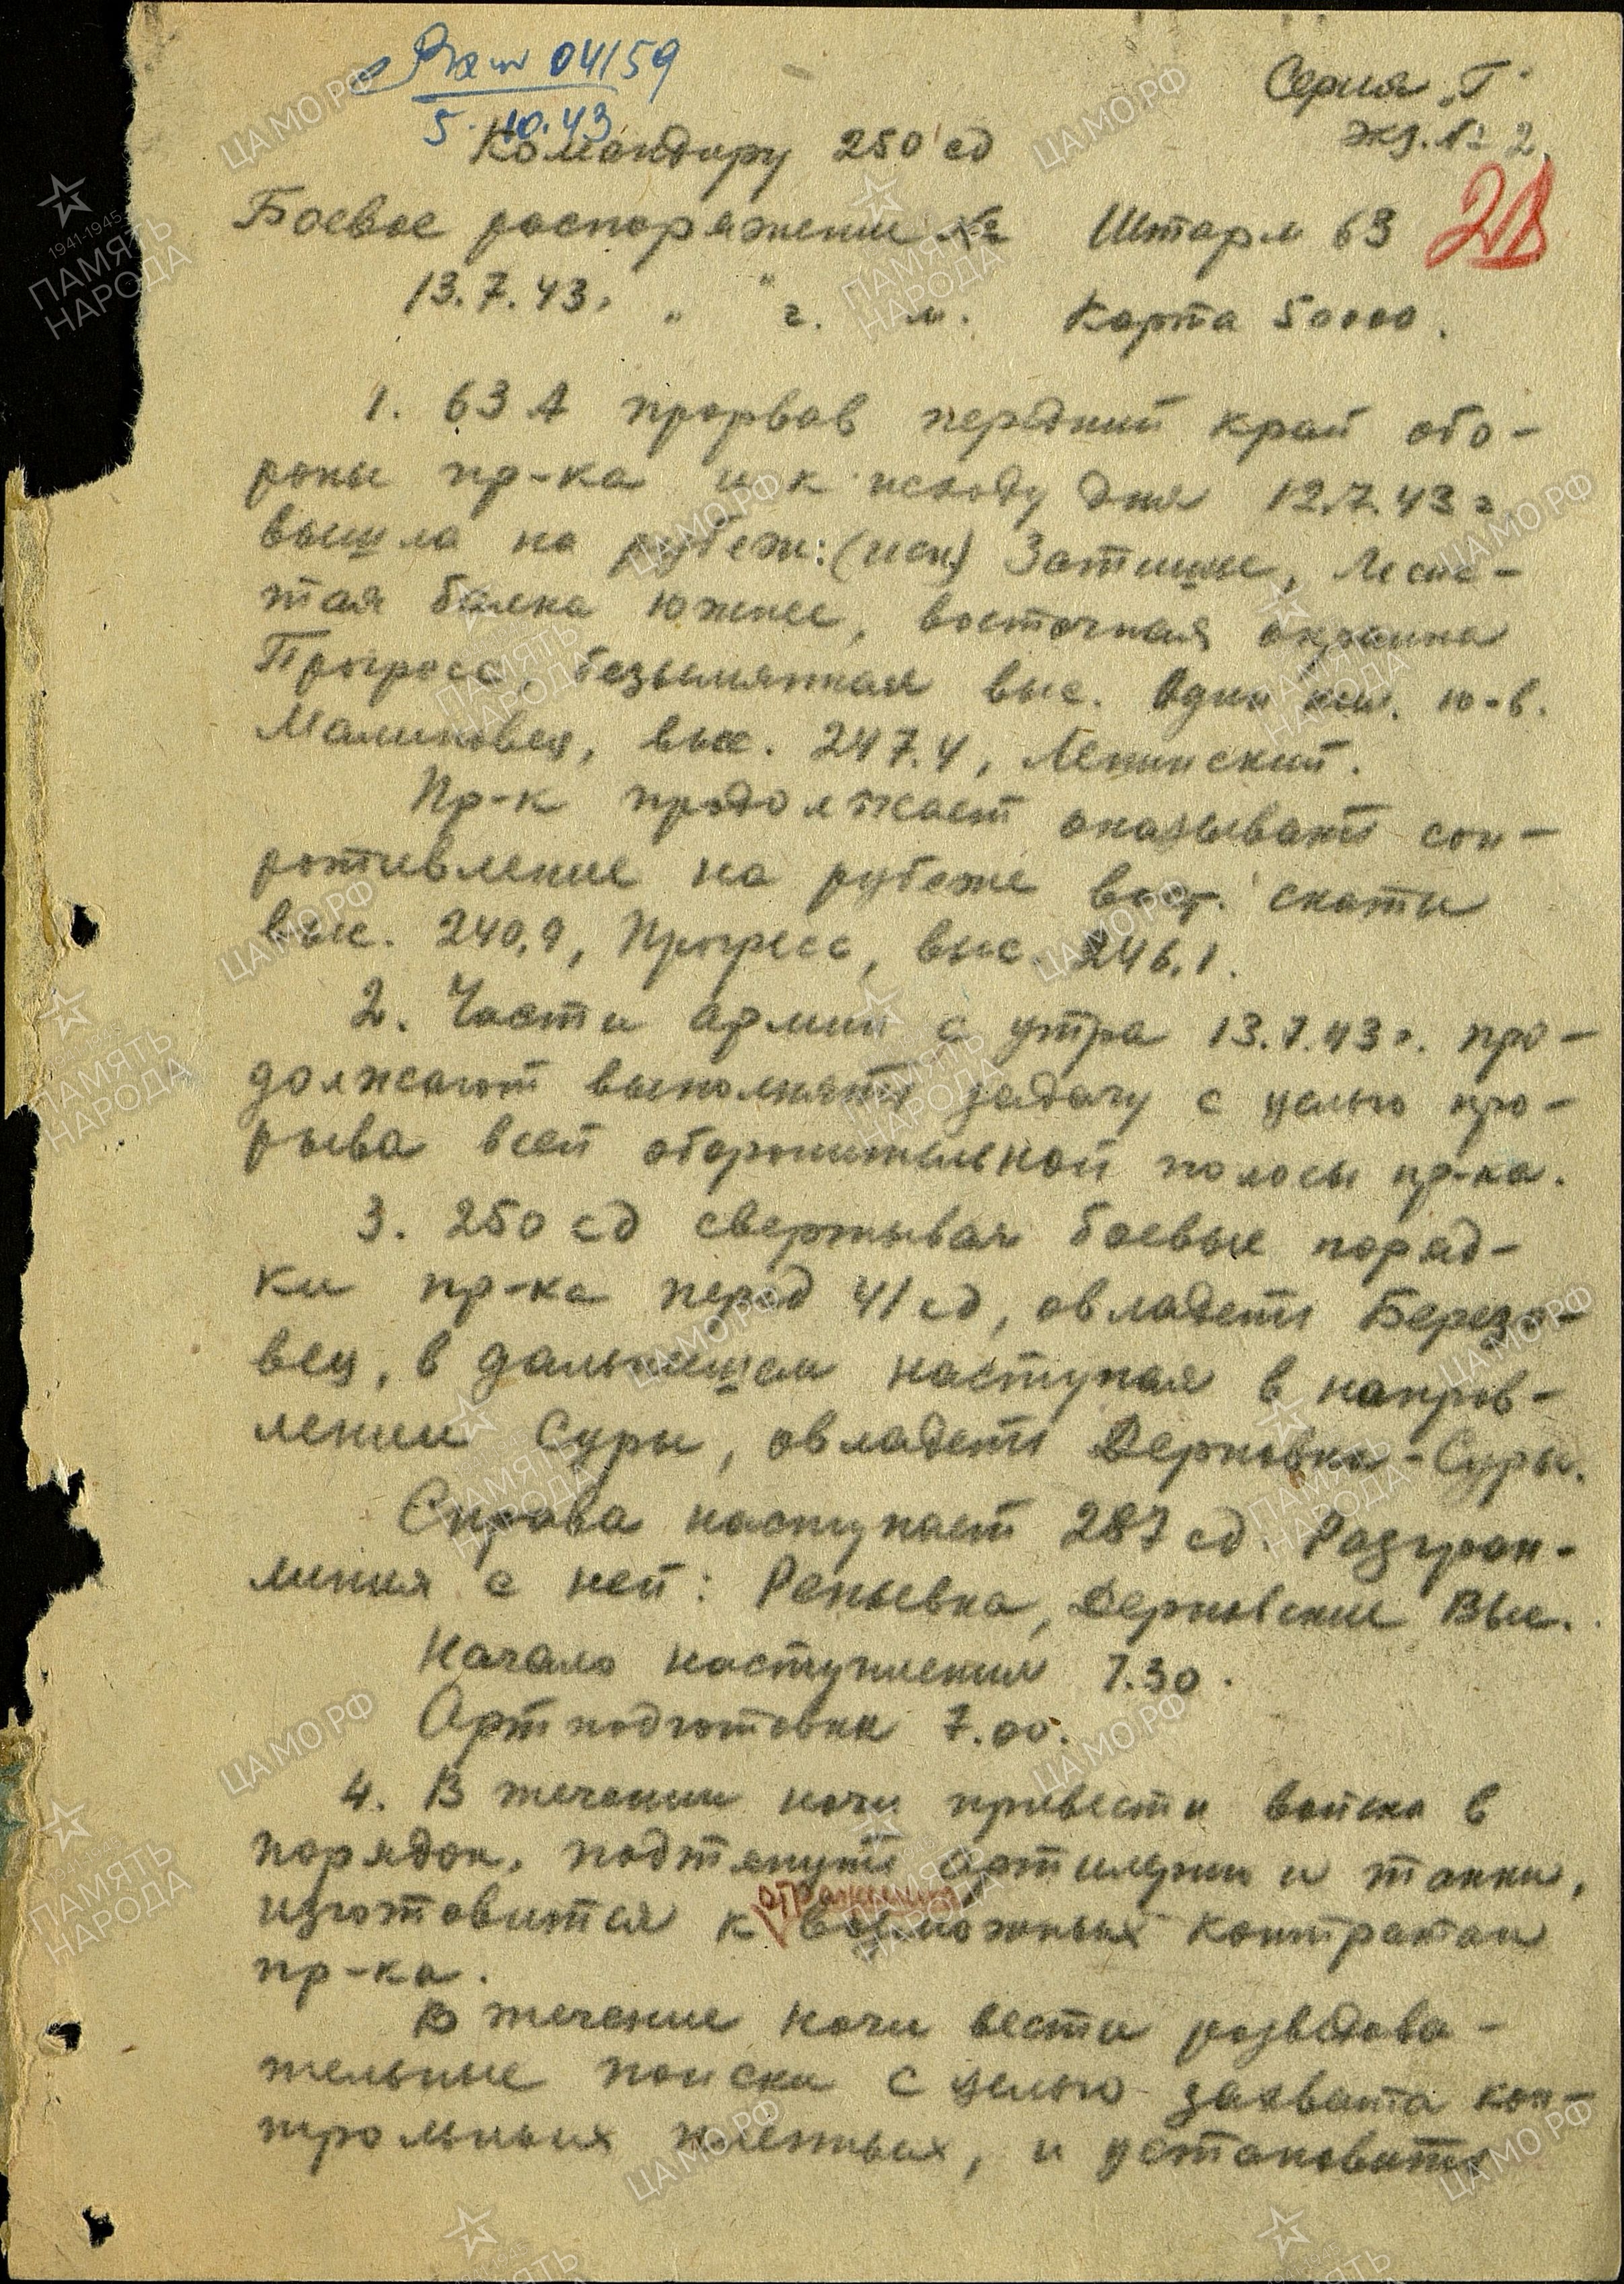 04159
5.10.43
Серия "Г"
Экз. № 2.
Командиру 250 сд
28
Боевое распоряжение № Штарм 63
13.7.43. " " г. м. Карта 50000.
1. 63 А прорвав передний край обо-
роны пр-ка и к исходу дня 12.7.43 г
вышла на рубеж: (иск) Затишье, Леси-
тая балка южнее, восточная окраина
Прогресс, безымянная выс. один км. ю-в.
Малиновец, выс. 247.4, Ленинский.
Пр-к продолжает оказывать соп-
ротивление на рубеже вост. скаты
выс. 240,9, Прогресс, выс. 246.1.
2. Части армии с утра 13.7.43 г. про-
должают выполнять задачу с целью про-
рыва всей оборонительной полосы пр-ка.
3. 250 сд свертывая боевые поряд-
ки пр-ка перед 41 сд, овладеть Березо-
вец, в дальнешем наступая в направ-
лении Суры, овладеть Дерновка-Суры.
Справа наступает 287 сд. Разгран-
линия с ней: Репьевка, Дерновские Выс.
Начало наступления 7.30.
Артподготовка 7.00.
4. В течении ночи привести войска в
порядок, подтянуть артилерию и танки,
изготовится к отражению возможных контратак
пр-ка.
В течение ночи вести разведова-
тельные поиски с целью захвата кон-
трольных пленных, и установить
ЦАМО.РФ
1941-1945
ПАМЯТЬ
НАРОДА